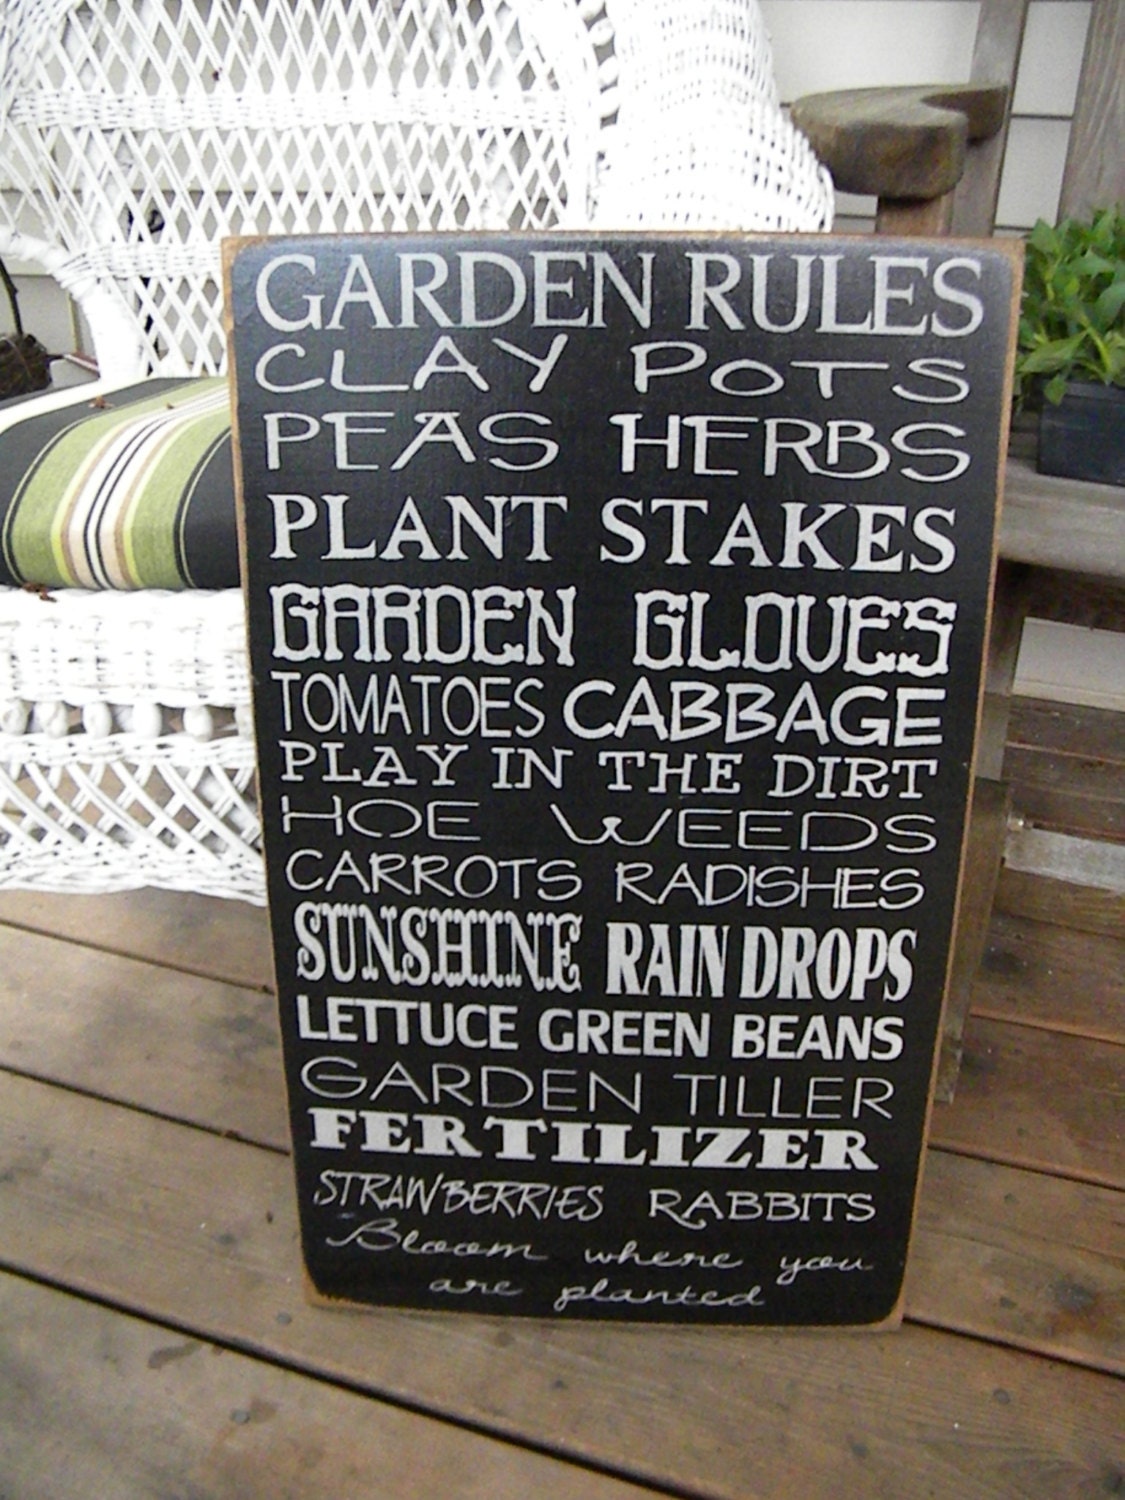 GARDEN RULES
CLAY POTS
PEAS HERBS
PLANT STAKES
GARDEN GLOVES
TOMATOES CABBAGE
PLAY IN THE DIRT
HOE WEEDS
CARROTS RADISHES
SUNSHINE RAIN DROPS
LETTUCE GREEN BEANS
GARDEN TILLER
FERTILIZER
STRAWBERRIES RABBITS
Bloom where you
are planted